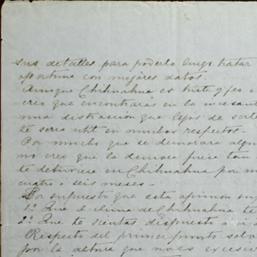 sus detalles para poderlo luego tratar
oportuna con mejores datos.
Aunque Chihuahua es triste y feo
creo que encontraras en la incesant
una distraccion que lejos de
te sera util en muchos respectos.
Por mucho que se demorara algun
no creo que la demora fuese tan
te detuviera en Chihuahua por m
cuatro o seis meses.
Por supuesto que esta opinion
1º Que el clima de Chihuahua te
2º Que te sientas dispuesto a
Respecto del primer punto
por la altura que no es excesiv